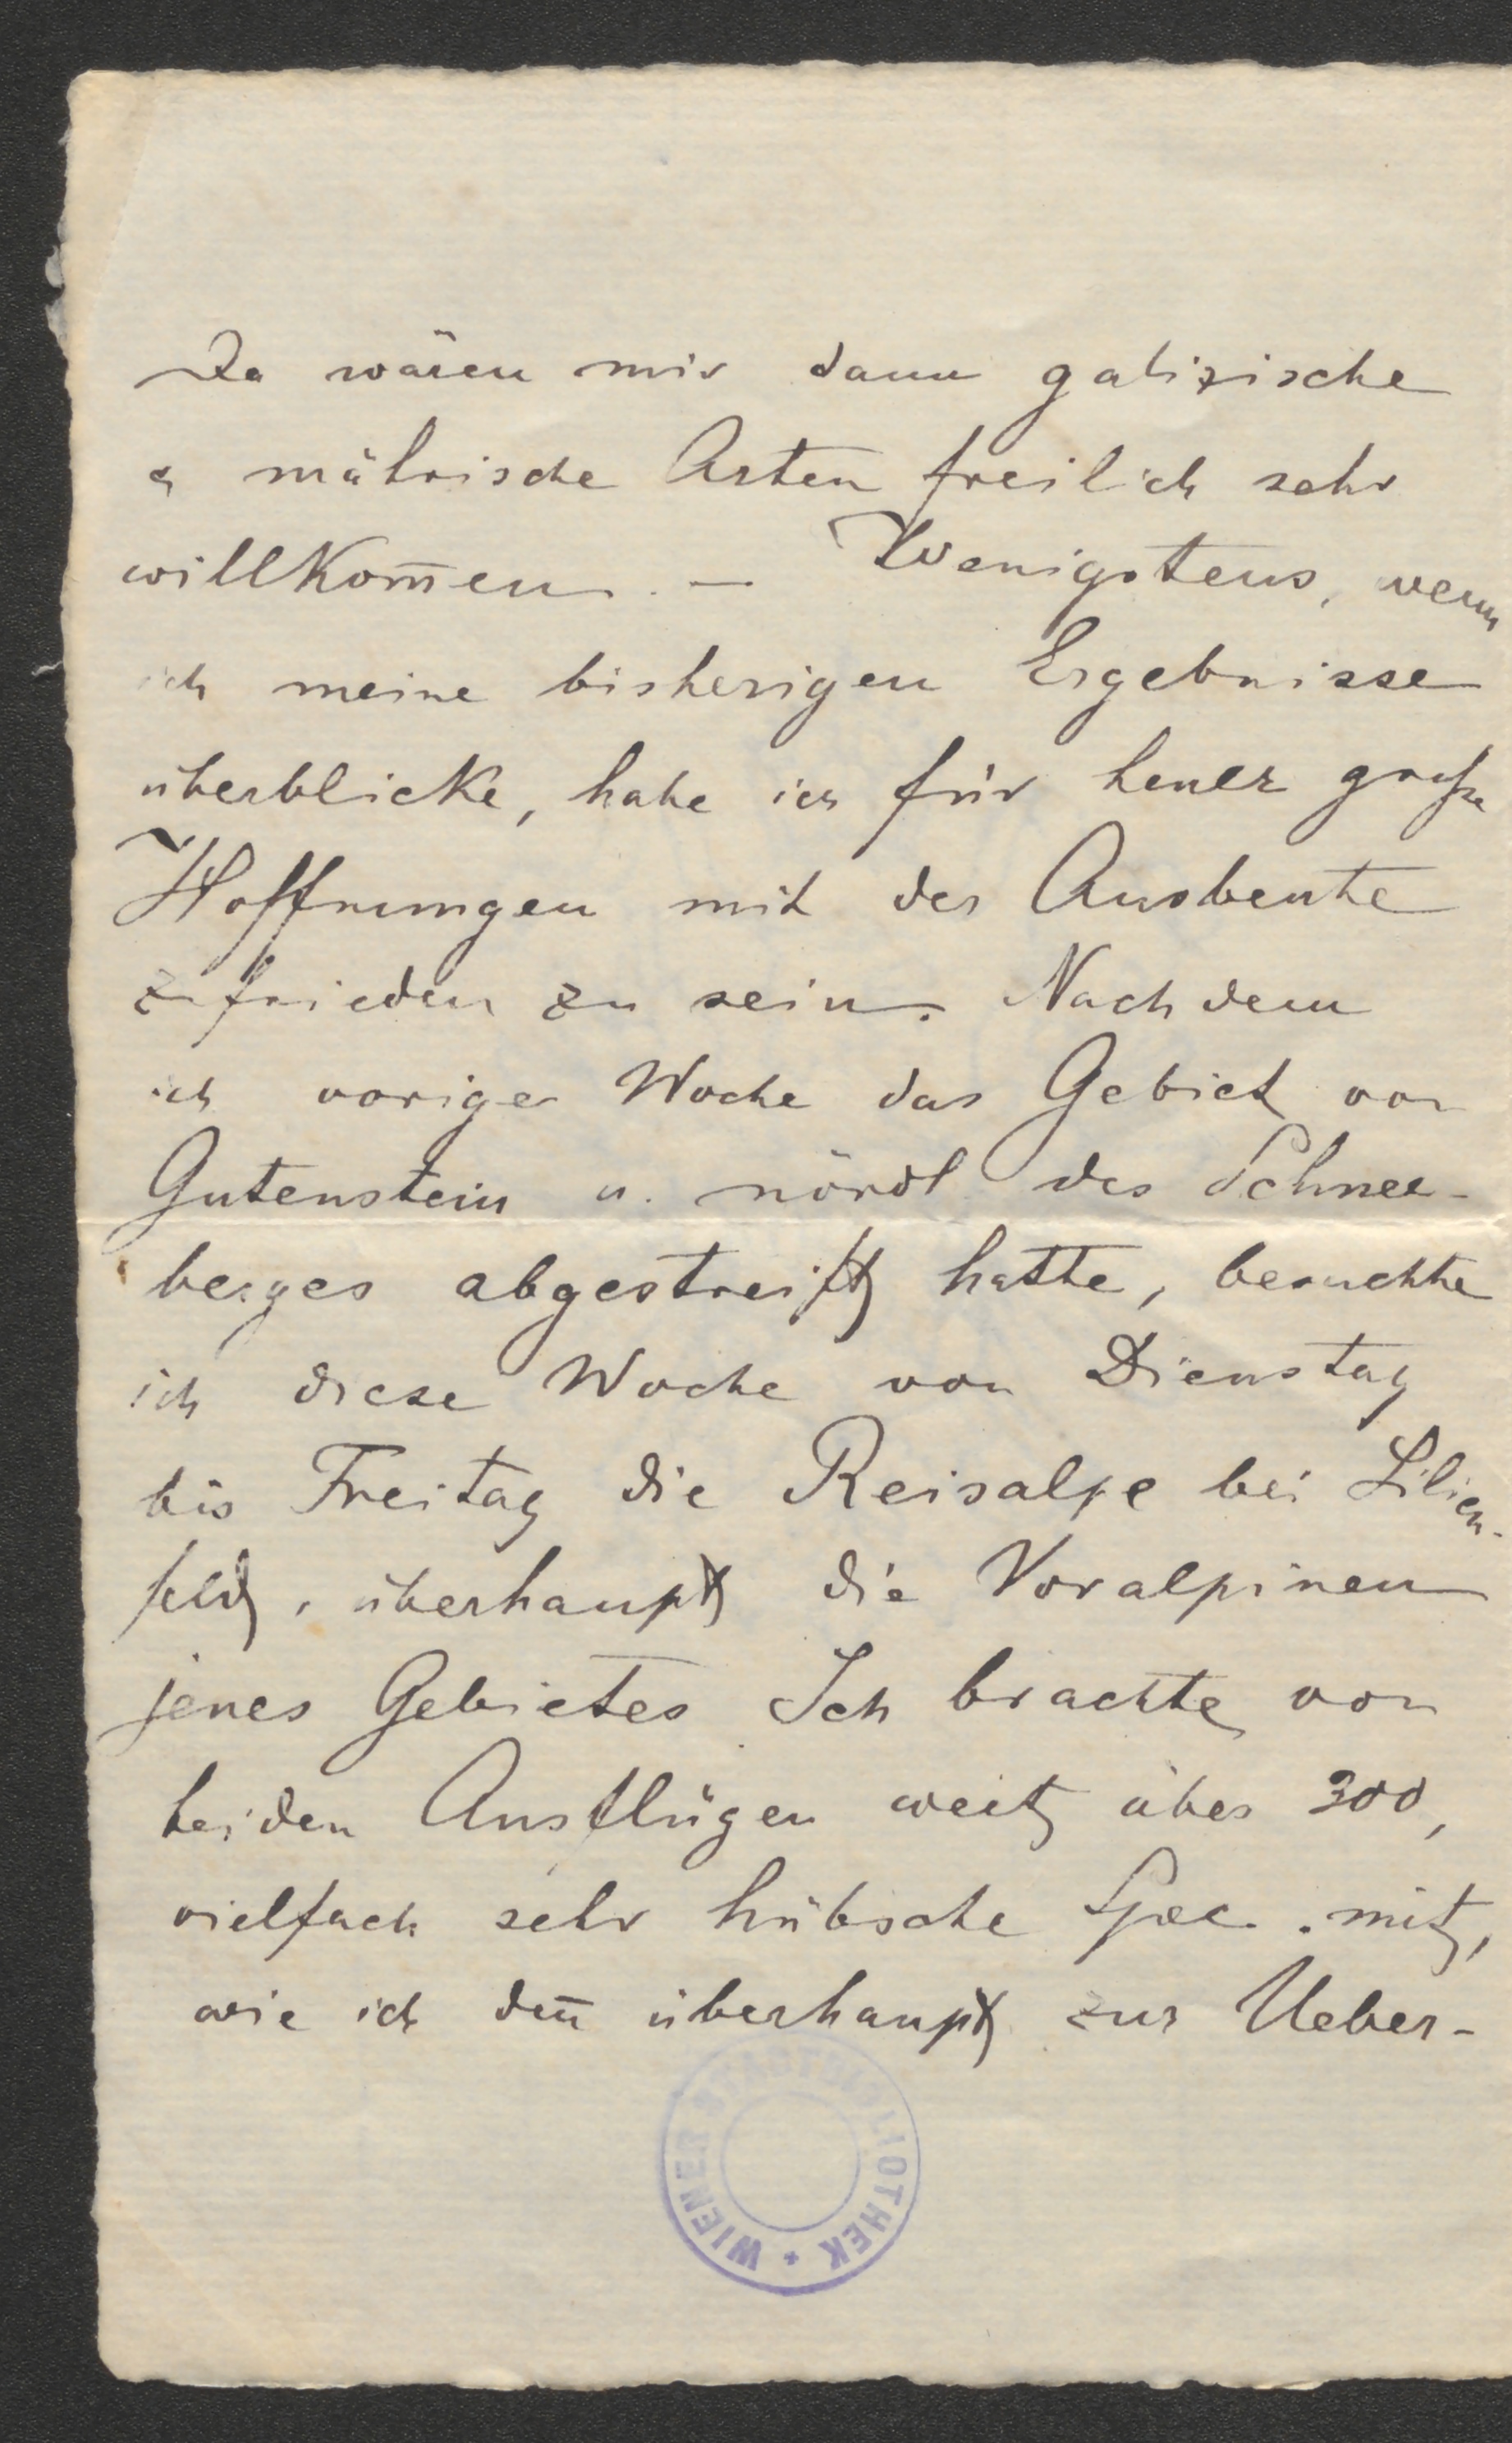 Da wären mir dann galizische
& mährische Arten freilich sehr
willkom̄en. – Wenigstens, wenn
ich meine bisherigen Ergebnisse
überblicke, habe ich für heuer große
Hoffnungen mit der Ausbeute
zufrieden zu sein. Nachdem
ich vorige Woche das Gebiet von
Gutenstein u. nördl des Schnee-
berges abgestreift hatte, besuchte
ich diese Woche von Dienstag
bis Freitag die Reisalpe bei Lilien-
feld, überhaupt die Voralpinen
jenes Gebietes Ich brachte von
beiden Ausflügen weit über 300,
vielfach sehr hübsche Spec. mit,
wie ich den̄ überhaupt zur Ueber-
WIENER STADTBIBLIOTHEK *